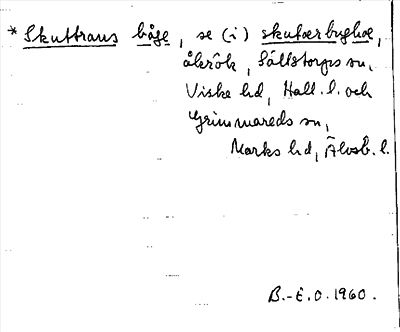 * Skuttrans båge, se (i) skutær byghæ,
åkrök, Sällstorps sn,
Viske hd, Hall. l. och
Grimmareds sn,
Marks hd, Älvsb. l.
B.-E.O. 1960.